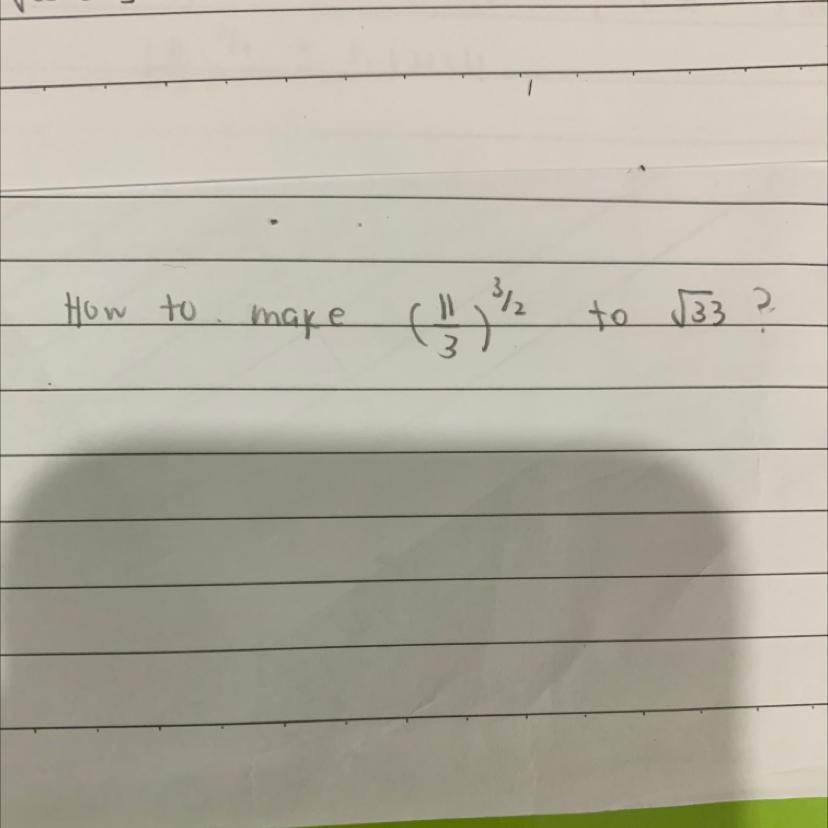 How to make (11/3)^3/2 to √33 ?